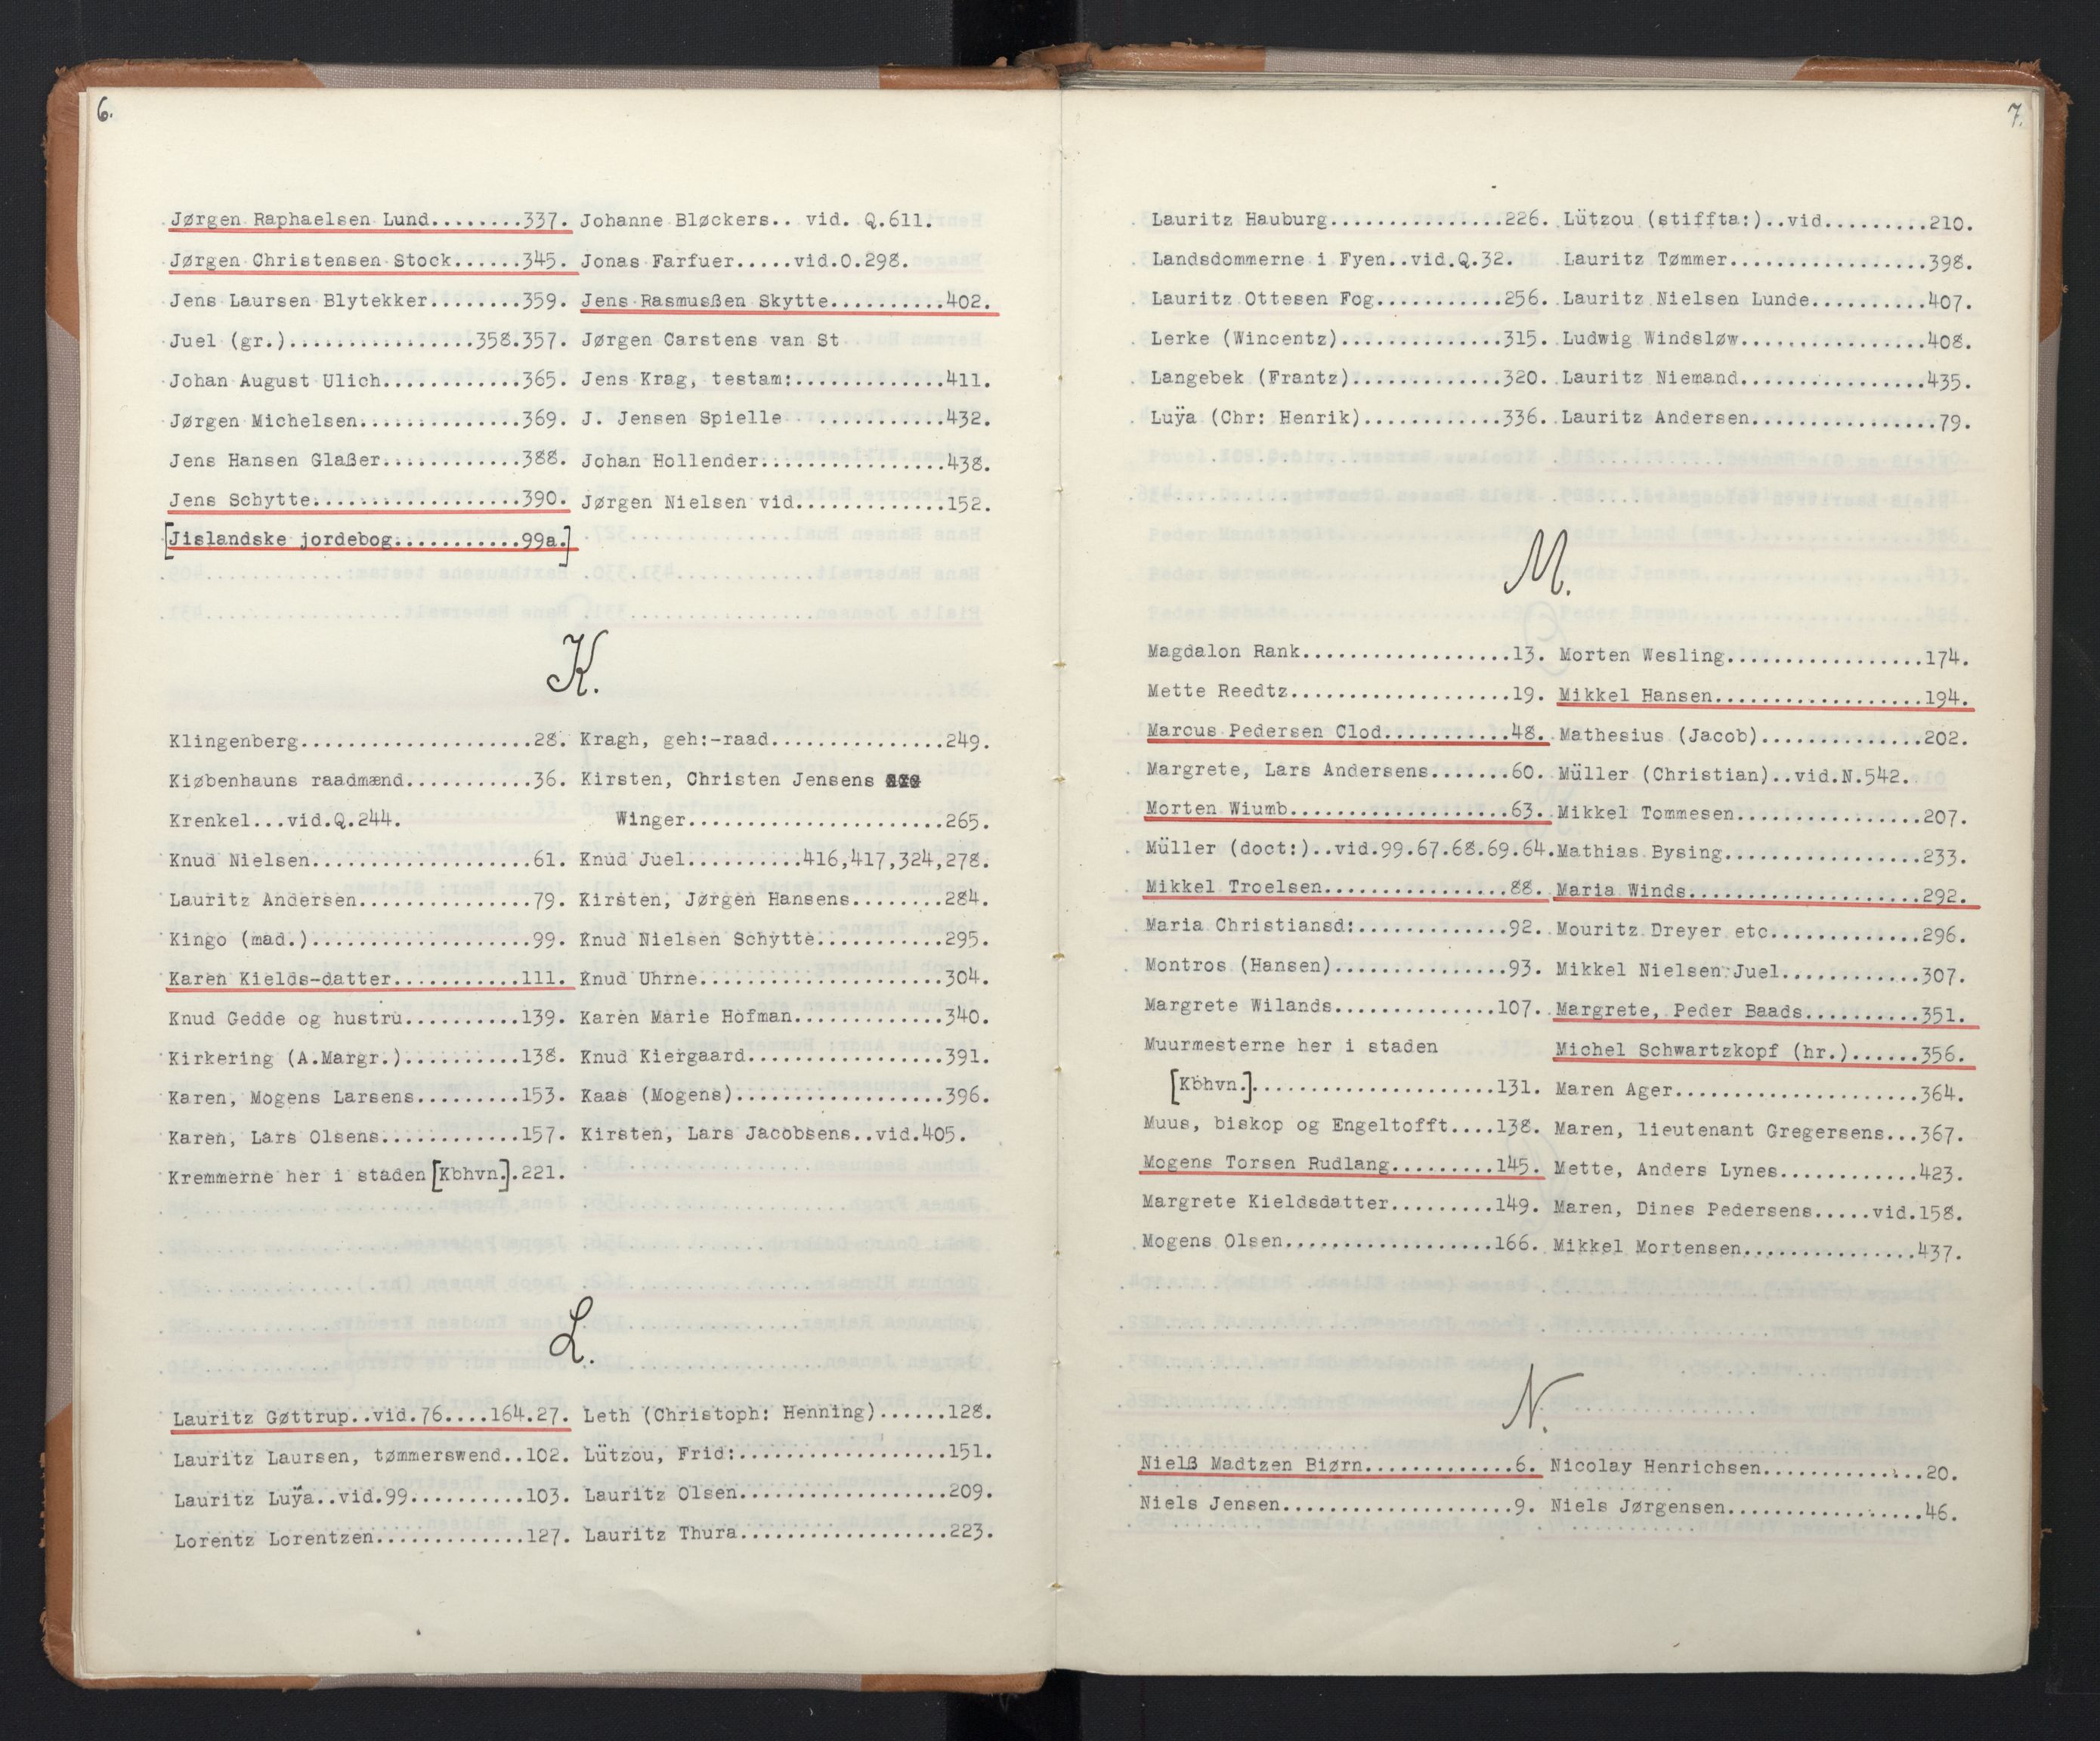 6.
Jørgen Raphaelsen Lund........337.
Jørgen Christensen Stock......345.
Jens Laursen Blytekker........359.
Juel (gr.).................358.357.
Johan August Ulich............365.
Jørgen Michelsen..............369.
Jens Hansen Glaßer............388.
Jens Schytte..................390.
[Jislandske jordebog...........99a.]
Johanne Bløckers.. vid. Q.611.
Jonas Farfuer.....vid.O.298.
Jens Rasmusßen Skytte..........402.
Jørgen Carstens van St
Jens Krag, testam:.............411.
J. Jensen Spielle ............432.
Johan Hollender................438.
Jørgen Nielsen vid.............152.
K.
Klingenberg.....................28.
Kiøbenhauns raadmænd...........36.
Krenkel...vid.Q.244.
Knud Nielsen...................61.
Lauritz Andersen...............79.
Kingo (mad.)...................99.
Karen Kields-datter...........111.
Knud Gedde og hustru..........139.
Kirkering (A.Margr.)..........138.
Karen, Mogens Larsens.........153.
Karen, Lars Olsens............157.
Kremmerne her i staden [Kbhvn.].221.
Kragh, geh:-raad...............249.
Kirsten, Christen Jensens
Winger......................265.
Knud Juel..........416,417,324,278.
Kirsten, Jørgen Hansens........284.
Knud Nielsen Schytte...........295.
Knud Uhrne.....................304.
Karen Marie Hofman.............340.
Knud Kiergaard.................391.
Kaas (Mogens)..................396.
Kirsten, Lars Jacobsens..vid.405.
L.
Lauritz Gøttrup..vid.76....164.27.
Lauritz Laursen, tømmerswend..102.
Lauritz Luÿa..vid.99..........103.
Lorentz Lorentzen.............127.
Leth (Christoph: Henning)......128.
Lützou, Frid:..................151.
Lauritz Olsen..................209.
Lauritz Thura..................223.
7.
Lauritz Hauburg...............226.
Landsdommerne i Fyen..vid.Q.32.
Lauritz Ottesen Fog...........256.
Lerke (Wincentz)..............315.
Langebek (Frantz).............320.
Luÿa (Chr: Henrik)............336.
Lützou (stiffta:)..vid.........210.
Lauritz Tømmer.................398.
Lauritz Nielsen Lunde..........407.
Ludwig Windsløw................408.
Lauritz Niemand................435.
Lauritz Andersen................79.
M.
Magdalon Rank..................13.
Mette Reedtz...................19.
Marcus Pedersen Clod...........48.
Margrete, Lars Andersens.......60.
Morten Wiumb...................63.
Müller (doct:)..vid.99.67.68.69.64.
Mikkel Troelsen................88.
Maria Christiansd:.............92.
Montros (Hansen)...............93.
Margrete Wilands..............107.
Muurmesterne her i staden
[Kbhvn.].....................131.
Muus, biskop og Engeltofft....138.
Mogens Torsen Rudlang.........145.
Margrete Kieldsdatter.........149.
Mogens Olsen..................166.
Morten Wesling.................174.
Mikkel Hansen..................194.
Mathesius (Jacob)..............202.
Müller (Christian)..vid.N.542.
Mikkel Tommesen................207.
Mathias Bysing.................233.
Maria Winds....................292.
Mouritz Dreyer etc.............296.
Mikkel Nielsen Juel............307.
Margrete, Peder Baads..........351.
Michel Schwartzkopf (hr.)......356.
Maren Ager.....................364.
Maren, lieutenant Gregersens...367.
Mette, Anders Lynes............423.
Maren, Dines Pedersens.....vid.158.
Mikkel Mortensen...............437.
N.
Nielß Madtzen Biørn.............6.
Niels Jensen....................9.
Nicolay Henrichsen..............20.
Niels Jørgensen.................46.